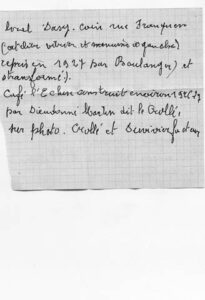 local Dary. coin rue Franquon
(atelier vitrier et menuisier à gauche)
repris en 1927 par Boulanger) et
transformé).
Café l'Echen construit environ 1926/27
par Dieudonné Marten dit le Crollé,
sur photo. Crollé et Duvivier